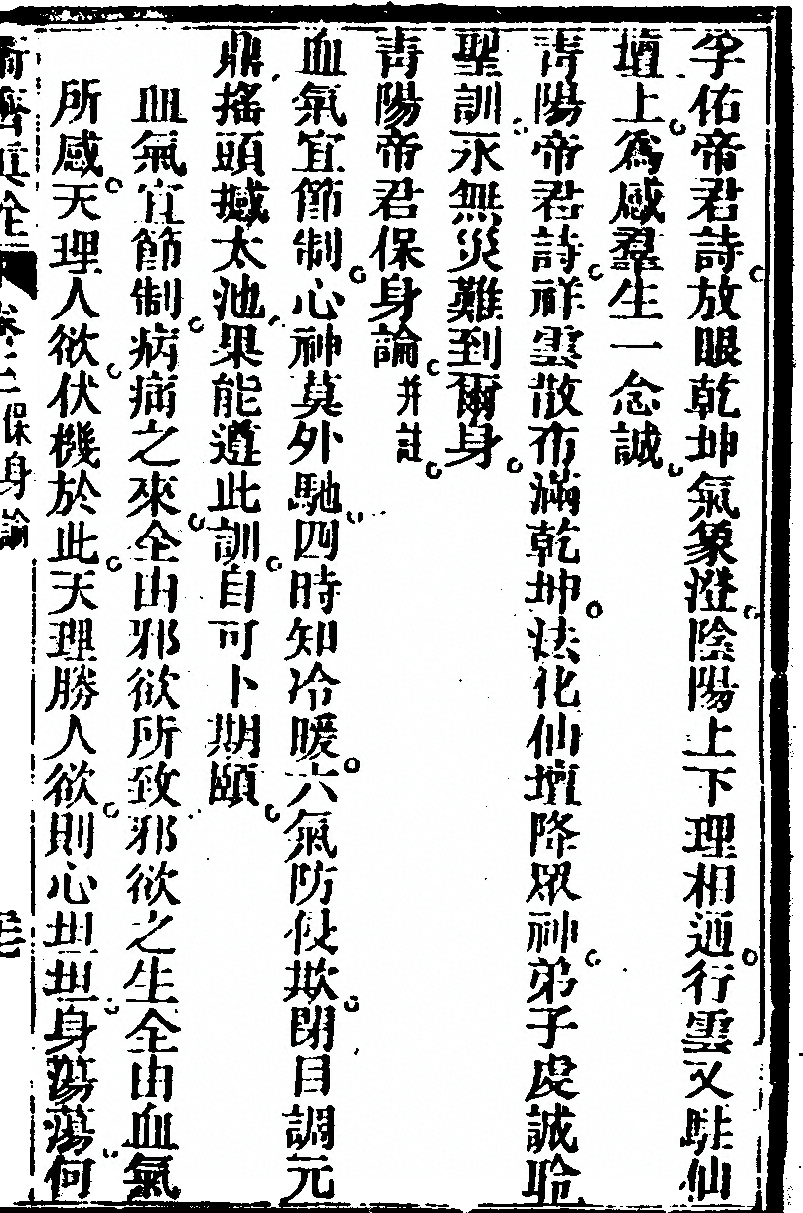 孚佑帝君詩放眼乾坤氣象澄陰陽上下理相通行雲又駐仙
壇上爲感羣生一念誠
青陽帝君詩祥雲散布滿乾坤法化仙壇降眾神弟子虔誠聆
聖訓永無災難到爾身
青陽帝君保身論并註
血氣宜節制心神莫外馳四時知冷暖六氣防侵欺閉目調元
鼎搖頭撼太池果能遵此訓自可卜期頤
血氣宜節制病痛之來全由邪欲所致邪欲之生全由血氣
所感天理人欲伏機於此天理勝人欲則心坦坦身蕩蕩何
卷二保身論